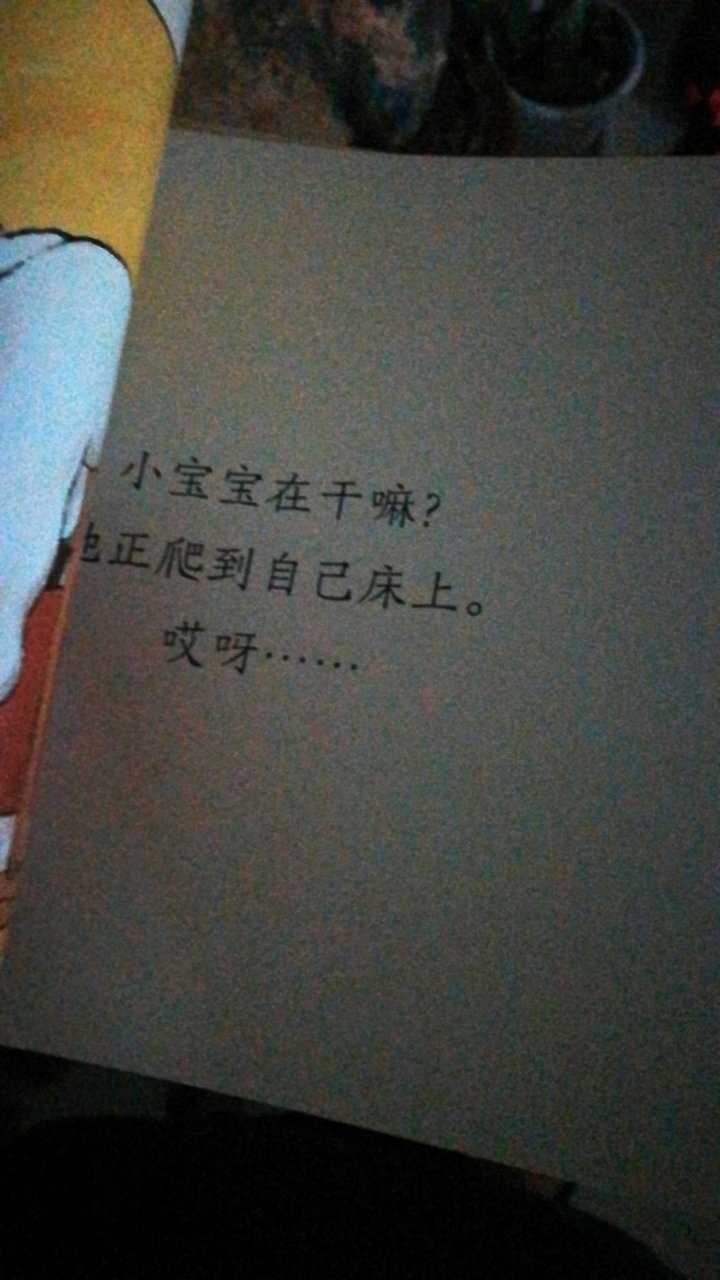 小宝宝在干嘛?
他正爬到自己床上。
哎呀……